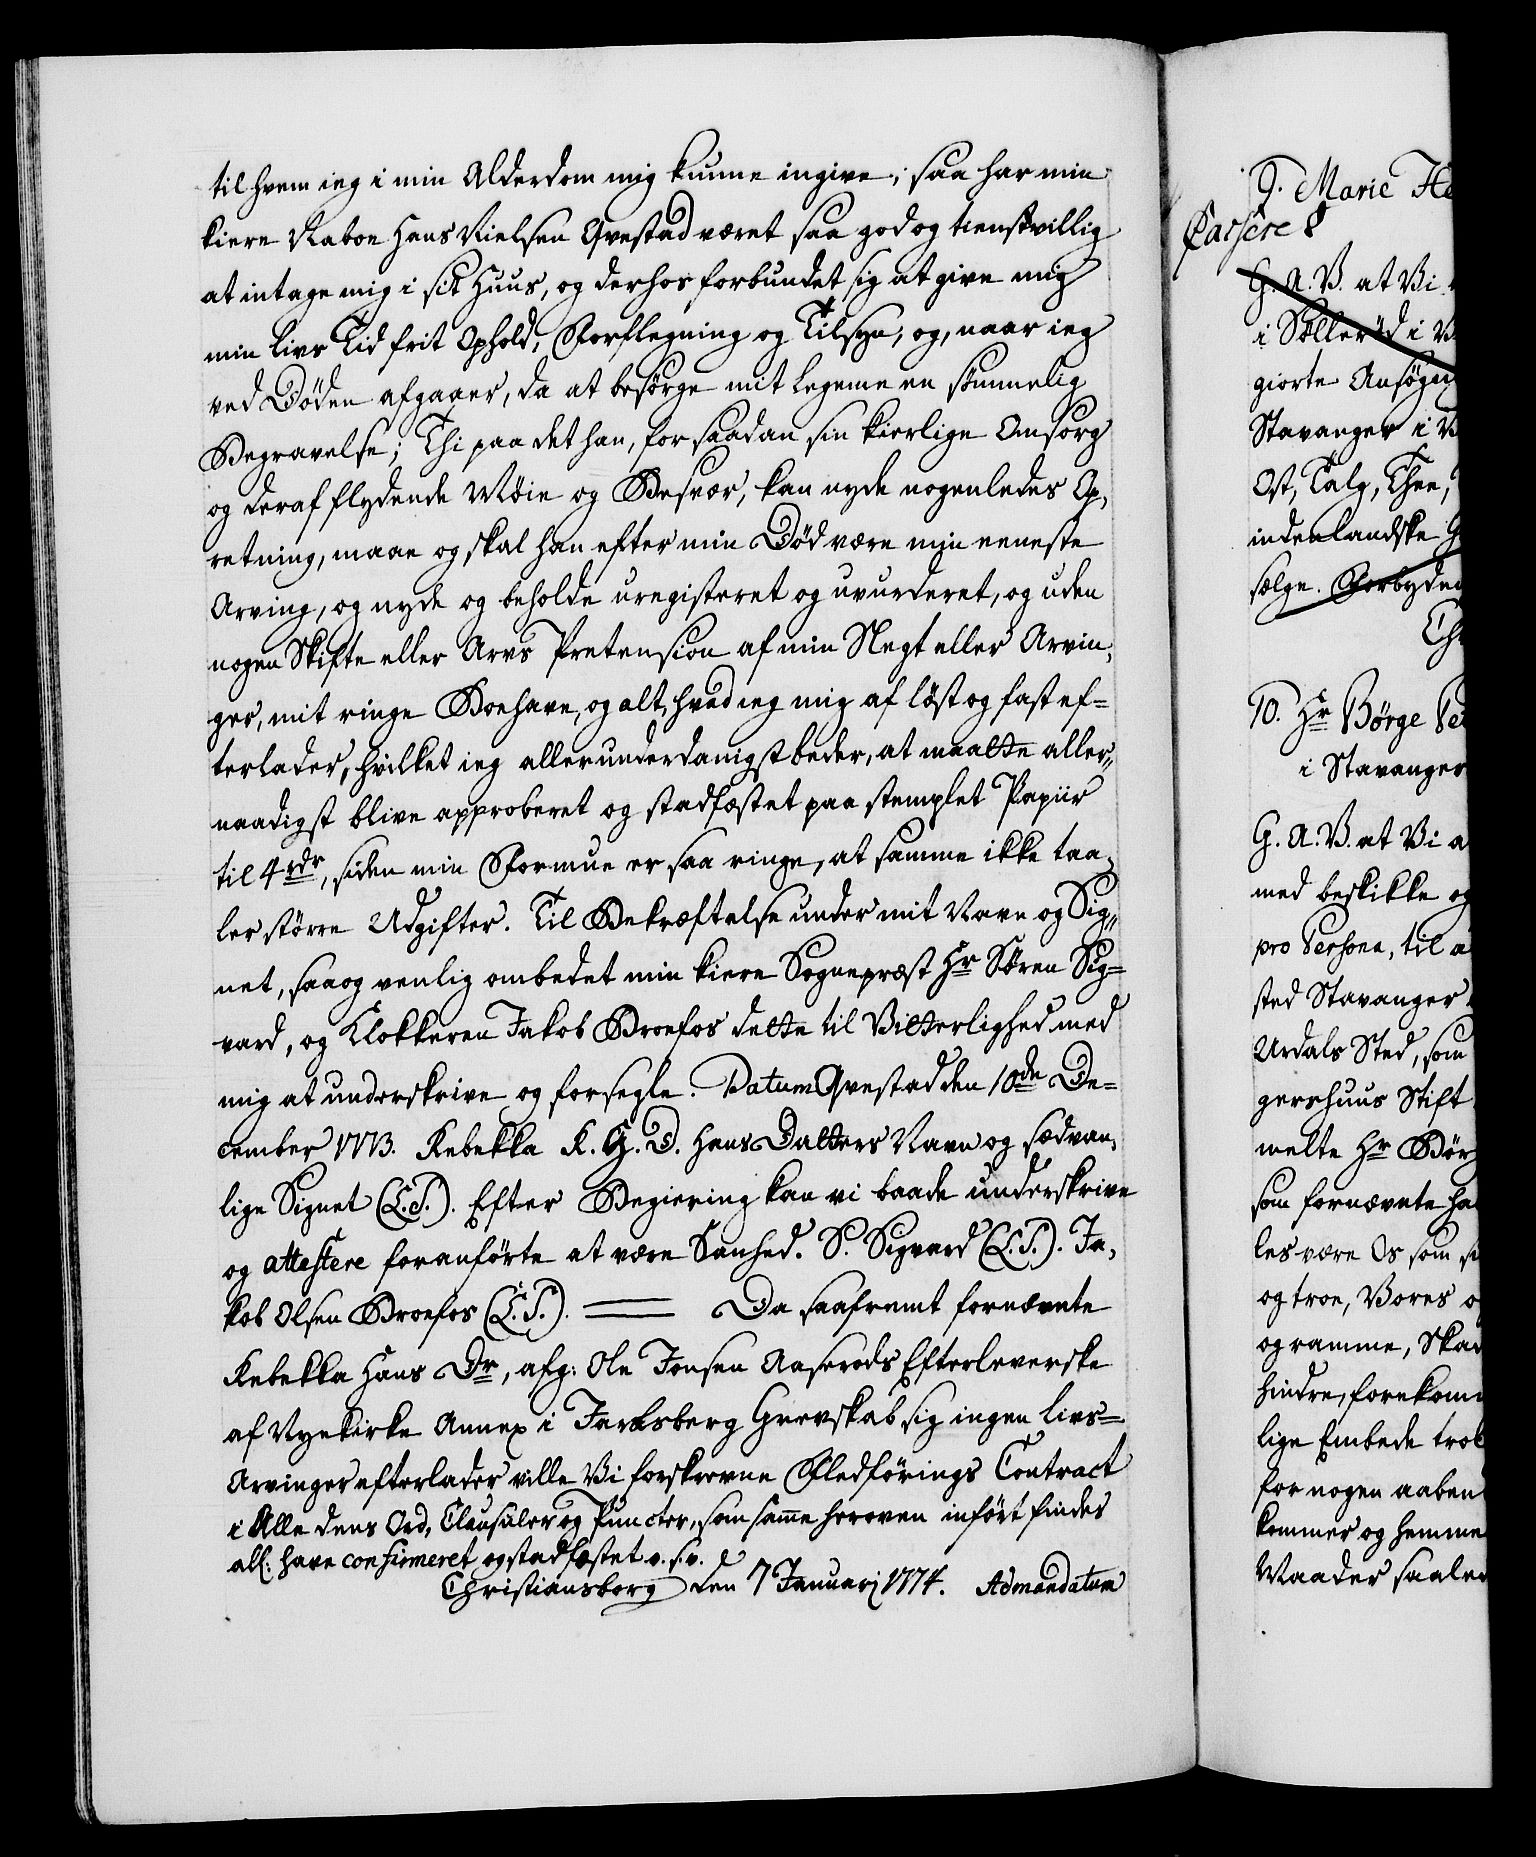 til hvem ieg i min Alderdom mig kunne ingive, saa har min
kiere Naboe Hans Nielsen Qvestad været saa god og tienstvillig
at intage mig i sit Huus, og derhos forbundet sig at give mig
min livs Tid frit Ophold, Forflegning og Tilsyn, og, naar ieg
ved Døden afgaaer, da at besørge mit Legeme en sømmelig
Begravelse; Thi paa det han, for saadan sin kierlige Omsorg
og deraf flydende Møie og Besvær, kan nyde nogenledes Op,
retning, maae og skal han efter min Død være min eeneste
Arving, og nyde og beholde uregisteret og uvurderet, og uden
nogen Skifte eller Arvs Pretension af min Slegt eller Arvin,
ger, mit ringe Boehave, og alt, hvad ieg mig af løst og fast ef=
terlader, hvilket ieg allerunderdanigst beder, at maatte aller,,
naadigst blive approberet og stadfæstet paa stemplet Papiir
til 4 rdr, siden min Formue er saa ringe, at samme ikke taa,
ler større Udgifter. Til Bekræftelse under mit Navn og Sig,,
net, saa og venlig ombedet min kiere Sognepræst Hr Søren Sig=
vard, og Klokkeren Jakob Broefos dette til Vitterlighed med
mig at underskrive og forsegle. Datum Qvestad den 10de De=
cember 1773. Rebekka R. H. D. Hans Datters Navn og sædvan,
lige Signet (L.S.). Efter Begiering kan vi baade underskrive
og attestere foranførte at være Sanhed. S. Sigvard (L.S.). Ja,
kob Olsen Broefos (L.S.). ═══ Da saafremt fornævnte
Rebekka Hans Dr, afg: Ole Jensen Aaserøds Efterleverske
af Nyekirke Annex i Jarlsberg Grevskab sig ingen livs=
Arvinger efterlader ville Vi forskrevne Fledførings Contract
i Alle dens Ord, Clausuler og Puncter, som samme heroven inført findes
all: have confirmeret og stadfæstet v. s. v.
Christiansborg den 7 Januarj 1774. Ad mandatum
9. Marie He
Casseres
G. A. V. at Vi
i Sølleröd i V
giorte Ansøgn
Stavanger i V
Ost, Talg, Thee,
indenlandske G
sælge. Forbyden
Ch
10. Hr Børge Pe
i Stavanger
G. A. V. at Vi a
med beskikke og
pro Persona, til a
sted Stavanger
Urdals Sted, som
gershuus Stift
melte Hr Bør
som fornævnte ha
les være Os som si
og troe, Vores o
og ramme, Skad
hindre, forekom
lige Embede trol
for nogen aaben
kommer og hemme
Maader saale